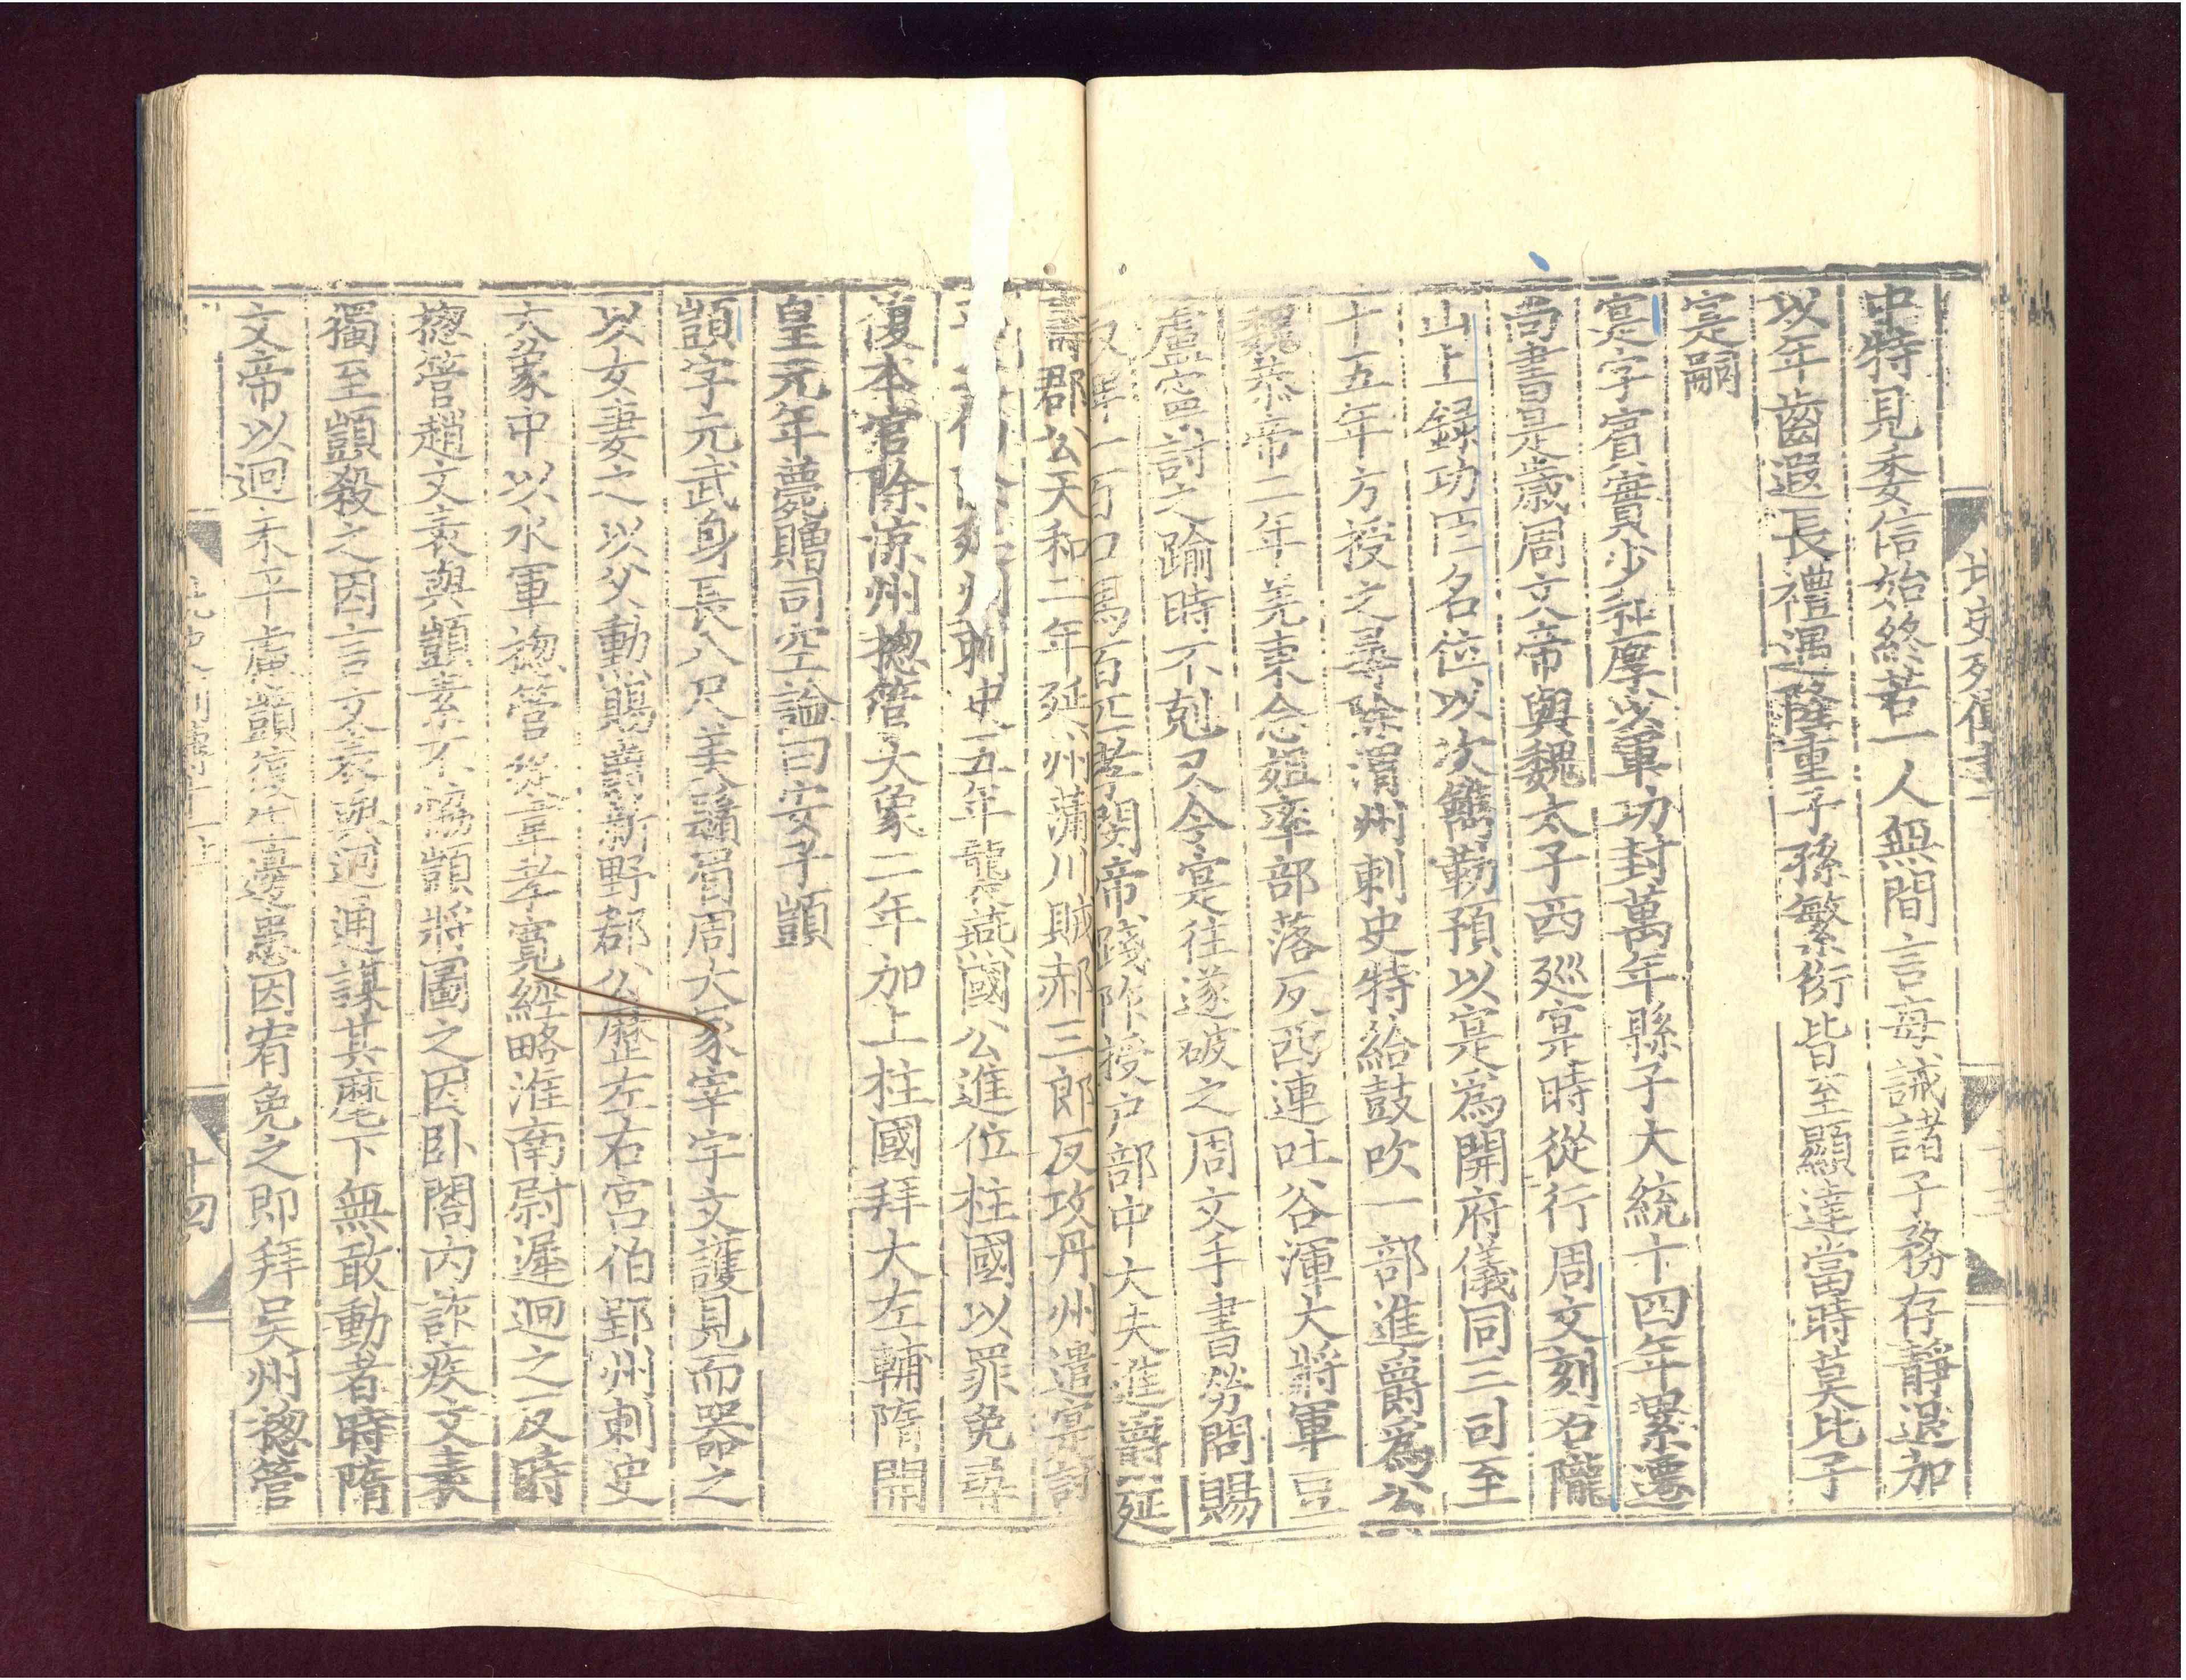 中特見委信始終若一人無間言每誡諸子務存靜退加
以年齒遐長禮遇隆重子孫繁衍皆至顯達當時莫比子
寔嗣
寔字賓實少和厚以軍功封萬年縣子大統十四年累遷
尚書是歲周文帝與魏太子西廵寔時從行周文刻石隴
山上錄功臣名位以次鐫勒預以寔爲開府儀同三司至
十五年方授之尋除渭州刺史特給鼓吹一部進爵爲公
魏恭帝二年羌東念姐率部落反西連吐谷渾大將軍豆
盧寧討之踰時不剋又令寔往遂破之周文手書勞問賜
口馬百匹孝閔帝踐阼授戶部中大夫進爵延
壽郡公天和二年延州蒲川賊郝三郎反攻丹州遣寔討
州刺史五年襲燕國公進位柱國以罪免尋
復本官除涼州揔管大象二年加上柱國拜大左輔隋開
皇元年薨贈司空謚曰安子顗
顗字元武身長八尺美鬚眉周大冢宰宇文護見而器之
以女妻之以父勳賜爵新野郡公歷左右宮伯郢州刺史
大象中以水軍揔管從韋孝寬經略淮南尉遲迥之反時
揔管趙文表與顗素不協顗將圖之因臥閤內詐疾文表
獨至顗殺之因言文表與迥通謀其麾下無敢動者時隋
文帝以迥未平慮顗復生邊患因宥免之即拜吳州揔管
十四